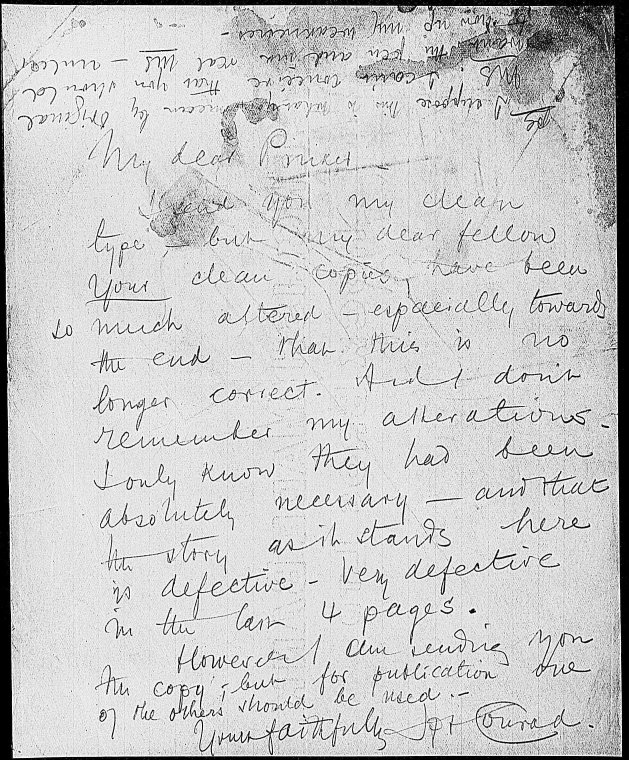 My dear Pinker
I send you my clean
type, – but my dear fellow
your clean copies have been
so much altered – especially towards
the end – that this is no
longer correct. And I don't
remember my alterations –
I only know they had been
absolutely necessary – and that
the story as it stands here
is defective – Very defective
in the last 4 pages.
However I am sending you
the copy; but for publication one
of the others should be used. –
Yours faithfully Jph Conrad.
PS
I suppose this is what you mean by original
MS. I can't conceive that you should
want the pen and ink MS – unless
to show up my weaknesses –